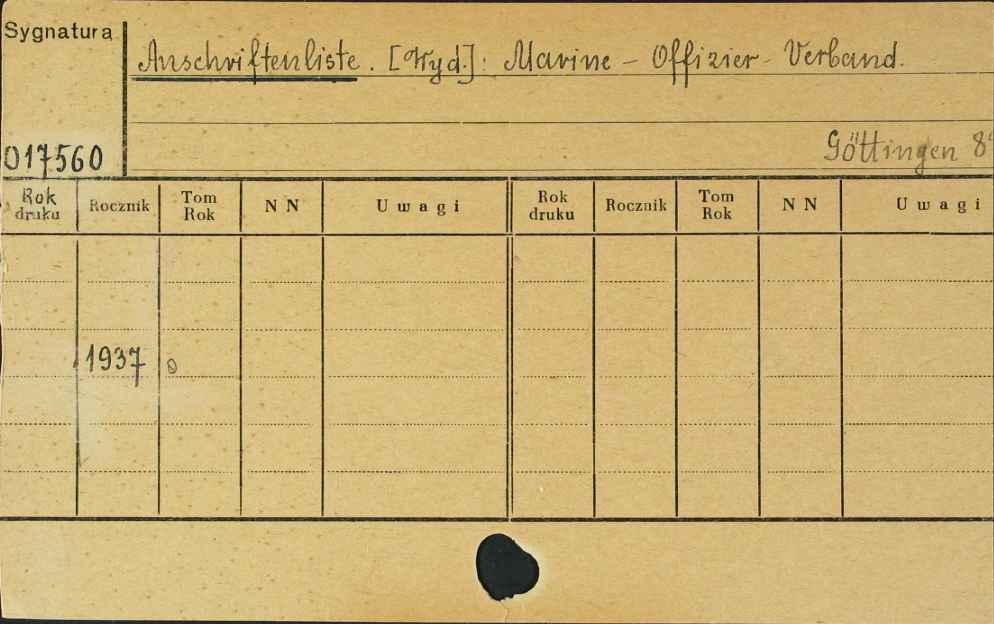 Sygnatura
Anschriftenliste. [Wyd.]: Marine - Offizier - Verband.
017560
Göttingen 8°
Rok druku Rocznik Tom Rok N N Uwagi Rok druku Rocznik Tom Rok N N Uwagi
1937 o